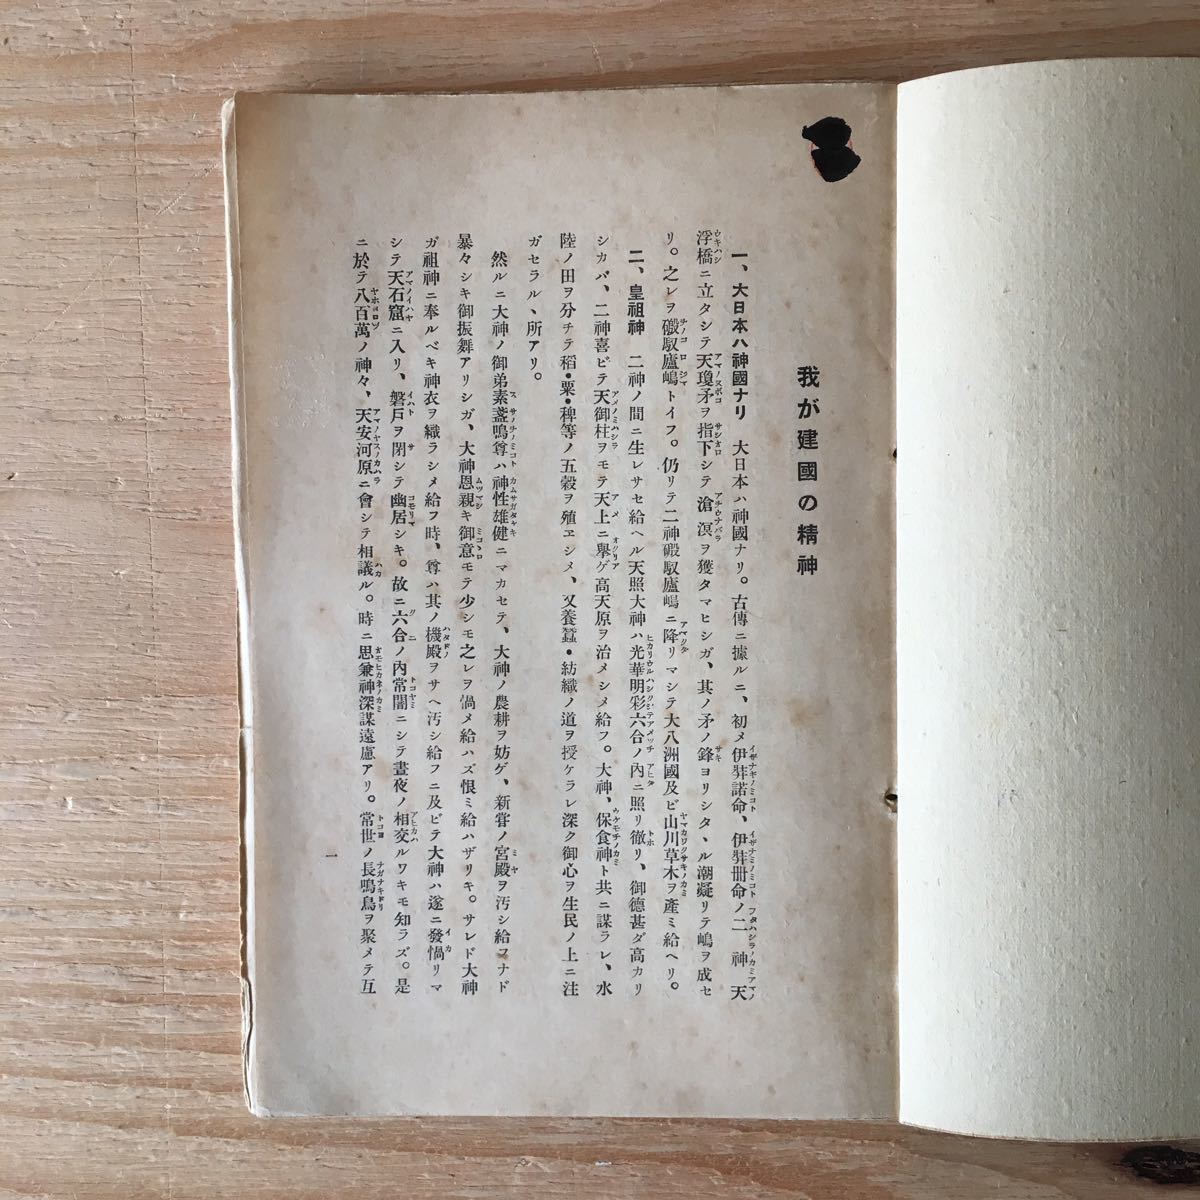 我が建國の精神
一、大日本ハ神國ナリ　大日本ハ神國ナリ。古傳ニ據ルニ、初メ伊弉諾命、伊弉冊命ノ二神天
浮橋ニ立タシテ天瓊矛ヲ指下シテ滄溟ヲ獲タマヒシガ、其ノ矛ノ鋒ヨリシタヽル潮凝リテ嶋ヲ成セ
リ。之レヲ磤馭廬嶋トイフ。仍リテ二神磤馭廬嶋ニ降リマシテ大八洲國及ビ山川草木ヲ產ミ給ヘリ。
二、皇祖神　二神ノ間ニ生レサセ給ヘル天照大神ハ光華明彩六合ノ內ニ照リ徹リ、御德甚ダ高カリ
シカバ、二神喜ビテ天御柱ヲモテ天上ニ擧ゲ高天原ヲ治メシメ給フ。大神、保食神ト共ニ謀ラレ、水
陸ノ田ヲ分チテ稻・粟・稗等ノ五穀ヲ殖ヱシメ、又養蠶・紡織ノ道ヲ授ケラレ深ク御心ヲ生民ノ上ニ注
ガセラルヽ所アリ。
然ルニ大神ノ御弟素盞嗚尊ハ神性雄健ニマカセテ、大神ノ農耕ヲ妨ゲ、新嘗ノ宮殿ヲ汚シ給フナド
暴々シキ御振舞アリシガ、大神恩親キ御意モテ少シモ之レヲ慍メ給ハズ恨ミ給ハザリキ。サレド大神
ガ祖神ニ奉ルベキ神衣ヲ織ラシメ給フ時、尊ハ其ノ機殿ヲサヘ汚シ給フニ及ビテ大神ハ遂ニ發慍リマ
シテ天石窟ニ入リ、磐戶ヲ閉シテ幽居シキ。故ニ六合ノ內常闇ニシテ晝夜ノ相交ルワキモ知ラズ。是
ニ於テ八百萬ノ神々、天安河原ニ會シテ相議ル。時ニ思兼神深謀遠慮アリ。常世ノ長鳴鳥ヲ聚メテ互
一